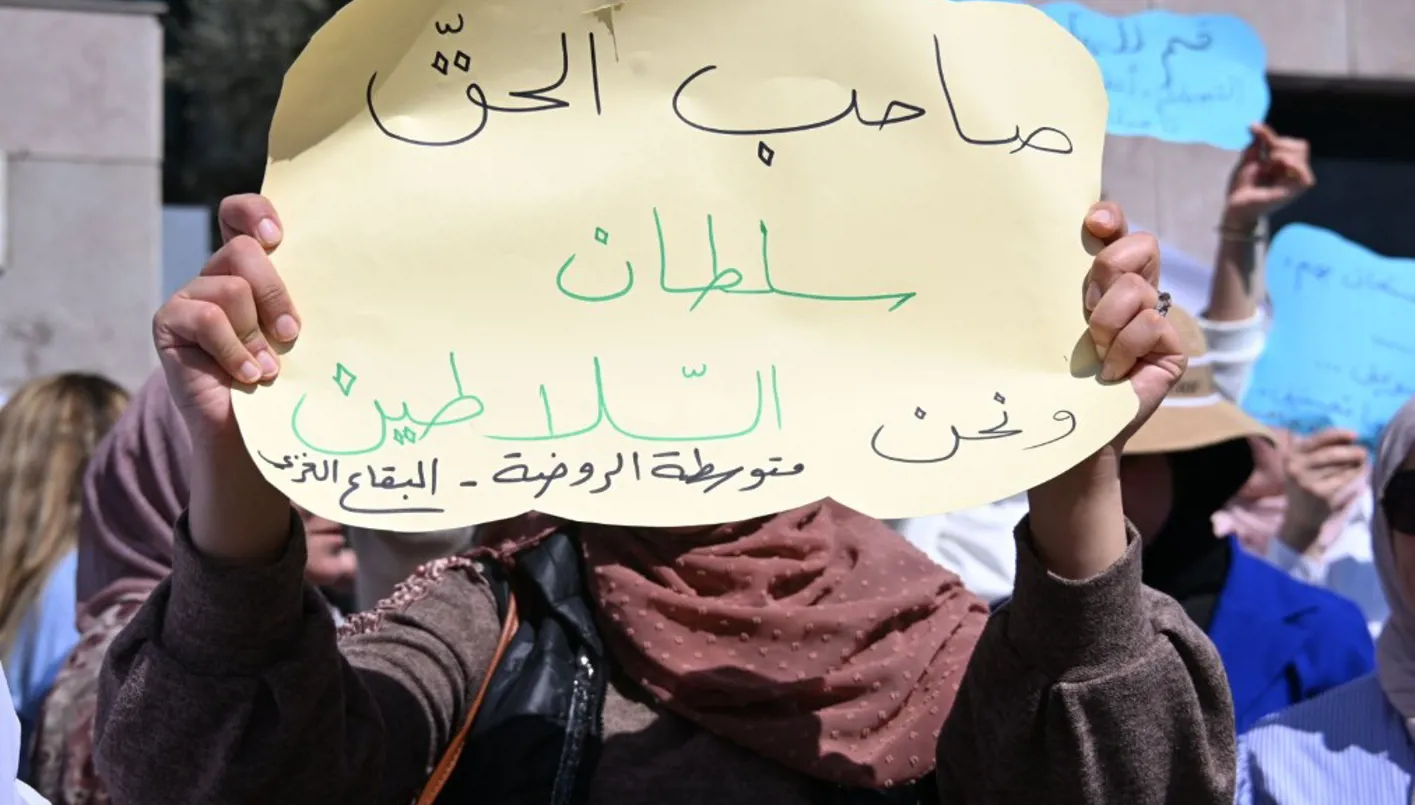 صاحب الحقّ
سلطان
ونحن السّلاطين
متوسطة الروضة - البقاع الغربي
قم للم